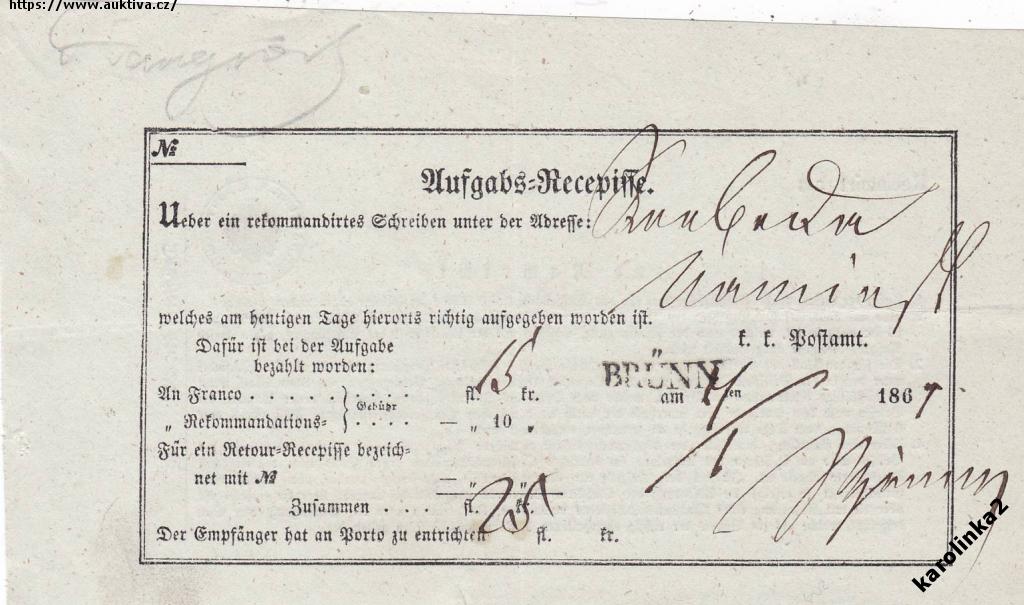 https://www.auktiva.cz/
№
Aufgabs-Recepisse.
Ueber ein rekommandirtes Schreiben unter der Adresse:
Namiest
welches am heutigen Tage hierorts richtig aufgegeben worden ist.
k. k. Postamt.
Dafür ist bei der Aufgabe
bezahlt worden:
BRÜNN
An Franco . . . . . . . . . fl. 15 kr.
am 4/1 ten 1867
Gebühr
„ Rekommandations= . . . . — „ 10 „
Für ein Retour-Recepisse bezeich-
net mit № — „ „
Zusammen . . . . fl. 25 kr.
Der Empfänger hat an Porto zu entrichten fl. kr.
karolinka2